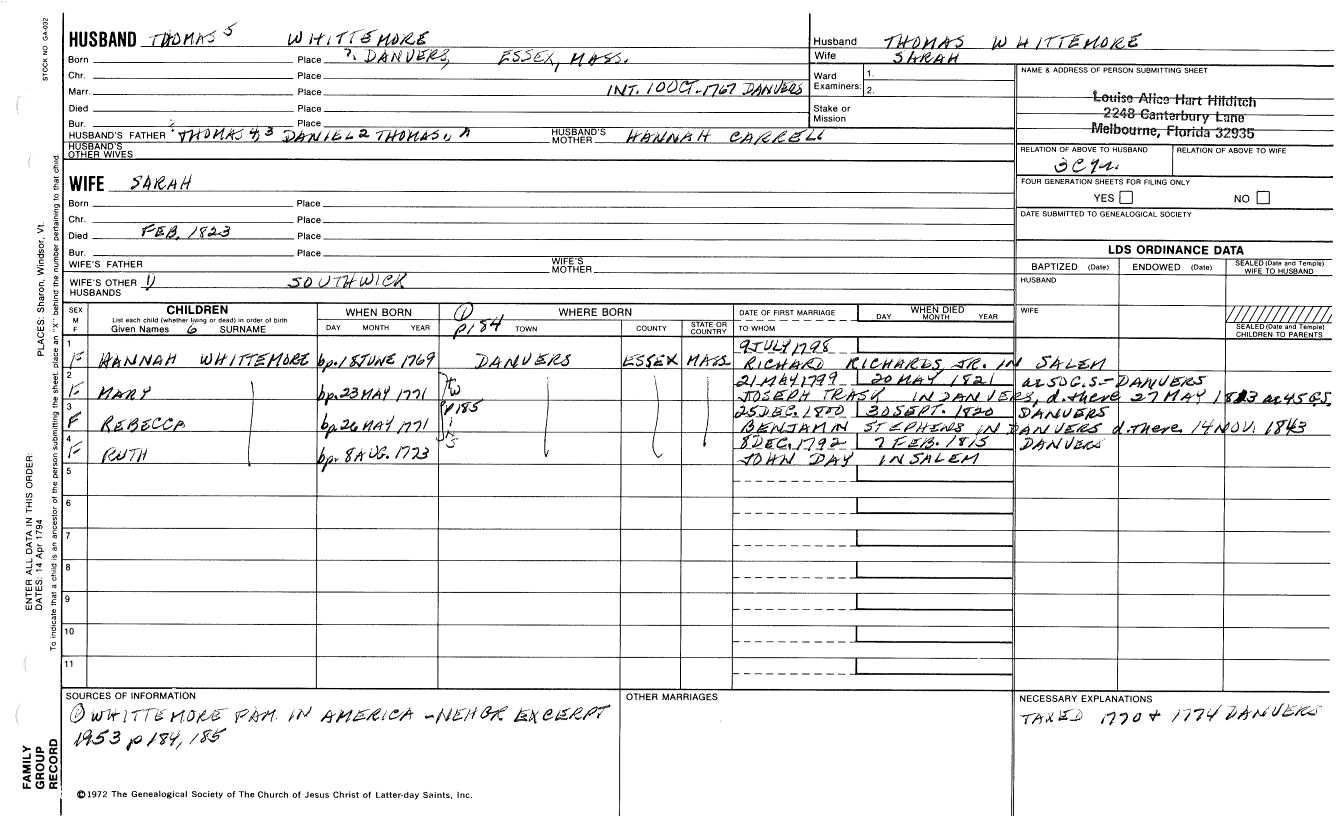 STOCK NO. GA-032
HUSBAND THOMAS 5 WHITTEMORE
Born Place ?. DANVERS, ESSEX, MASS.
Chr. Place
Marr. Place INT. 10 OCT. 1767 DANVERS
Died Place
Bur. Place
HUSBAND'S FATHER THOMAS 4,3 DANIEL 2 THOMAS, A HUSBAND'S MOTHER HANNAH CARRELL
HUSBAND'S OTHER WIVES
Husband THOMAS WHITTEMORE
Wife SARAH
Ward Examiners: 1.
2.
Stake or Mission
NAME & ADDRESS OF PERSON SUBMITTING SHEET
Louise Alice Hart Hilditch
2248 Canterbury Lane
Melbourne, Florida 32935
RELATION OF ABOVE TO HUSBAND RELATION OF ABOVE TO WIFE
FOUR GENERATION SHEETS FOR FILING ONLY
YES NO
DATE SUBMITTED TO GENEALOGICAL SOCIETY
WIFE SARAH
Born Place
Chr. Place
Died FEB, 1823 Place
Bur. Place
WIFE'S FATHER WIFE'S MOTHER
WIFE'S OTHER HUSBANDS 1) SOUTHWICK
LDS ORDINANCE DATA
BAPTIZED (Date) ENDOWED (Date) SEALED (Date and Temple) WIFE TO HUSBAND
HUSBAND
WIFE
SEALED (Date and Temple) CHILDREN TO PARENTS
SEX M F
CHILDREN
List each child (whether living or dead) in order of birth
Given Names 6 SURNAME
WHEN BORN
DAY MONTH YEAR
① p184
WHERE BORN
TOWN COUNTY STATE OR COUNTRY
DATE OF FIRST MARRIAGE
TO WHOM
WHEN DIED
DAY MONTH YEAR
1 9 JULY 1798
F HANNAH WHITTEMORE bp. 18 JUNE 1769 DANVERS ESSEX MASS RICHARD RICHARDS, JR. IN SALEM
2 21 MAY 1799 20 MAY 1821 ae 50 G.S. - DANVERS
F MARY bp. 23 MAY 1771 JOSEPH TRASK IN DANVERS, d. there 27 MAY 1823 ae 45 G.S.
3 p185 25 DEC. 1800 30 SEPT. 1820 DANVERS
F REBECCA bp. 26 MAY 1771 BENJAMIN STEPHENS IN DANVERS d. there 14 NOV. 1843
4 8 DEC. 1792 7 FEB. 1815 DANVERS
F RUTH bp. 8 AUG. 1773 JOHN DAY IN SALEM
5
6
7
8
9
10
11
SOURCES OF INFORMATION
① WHITTEMORE FAM. IN AMERICA - NEHGR EXCERPT
1953 p 184, 185
OTHER MARRIAGES
NECESSARY EXPLANATIONS
TAXED 1770 + 1774 DANVERS
©1972 The Genealogical Society of The Church of Jesus Christ of Latter-day Saints, Inc.
FAMILY GROUP RECORD
ENTER ALL DATA IN THIS ORDER:
DATES: 14 Apr 1794
PLACES: Sharon, Windsor, Vt.
To indicate that a child is an ancestor of the person submitting the sheet, place an "X" behind the number pertaining to that child.